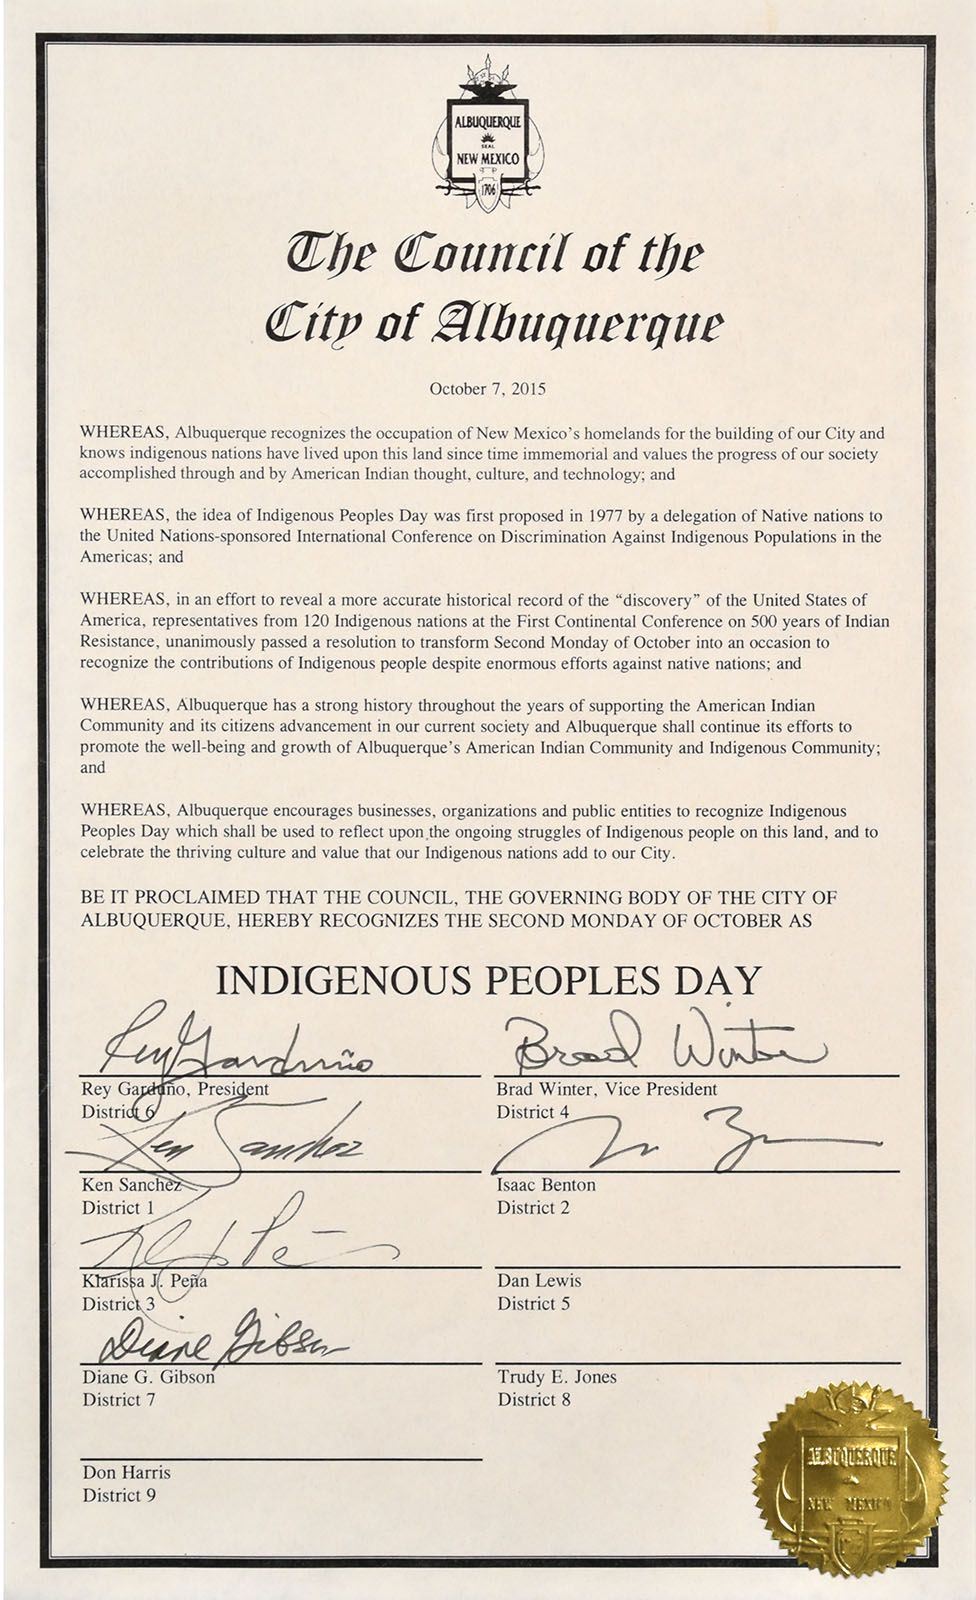 ALBUQUERQUE
SEAL
NEW MEXICO
1706
The Council of the
City of Albuquerque
October 7, 2015
WHEREAS, Albuquerque recognizes the occupation of New Mexico's homelands for the building of our City and
knows indigenous nations have lived upon this land since time immemorial and values the progress of our society
accomplished through and by American Indian thought, culture, and technology; and
WHEREAS, the idea of Indigenous Peoples Day was first proposed in 1977 by a delegation of Native nations to
the United Nations-sponsored International Conference on Discrimination Against Indigenous Populations in the
Americas; and
WHEREAS, in an effort to reveal a more accurate historical record of the “discovery” of the United States of
America, representatives from 120 Indigenous nations at the First Continental Conference on 500 years of Indian
Resistance, unanimously passed a resolution to transform Second Monday of October into an occasion to
recognize the contributions of Indigenous people despite enormous efforts against native nations; and
WHEREAS, Albuquerque has a strong history throughout the years of supporting the American Indian
Community and its citizens advancement in our current society and Albuquerque shall continue its efforts to
promote the well-being and growth of Albuquerque's American Indian Community and Indigenous Community;
and
WHEREAS, Albuquerque encourages businesses, organizations and public entities to recognize Indigenous
Peoples Day which shall be used to reflect upon the ongoing struggles of Indigenous people on this land, and to
celebrate the thriving culture and value that our Indigenous nations add to our City.
BE IT PROCLAIMED THAT THE COUNCIL, THE GOVERNING BODY OF THE CITY OF
ALBUQUERQUE, HEREBY RECOGNIZES THE SECOND MONDAY OF OCTOBER AS
INDIGENOUS PEOPLES DAY
Rey Garduño
Brad Winter
Rey Garduño, President
Brad Winter, Vice President
District 6
District 4
Ken Sanchez
Ken Sanchez
Isaac Benton
District 1
District 2
Klarissa J. Peña
Dan Lewis
District 3
District 5
Diane Gibson
Diane G. Gibson
Trudy E. Jones
District 7
District 8
Don Harris
District 9
ALBUQUERQUE
NEW MEXICO